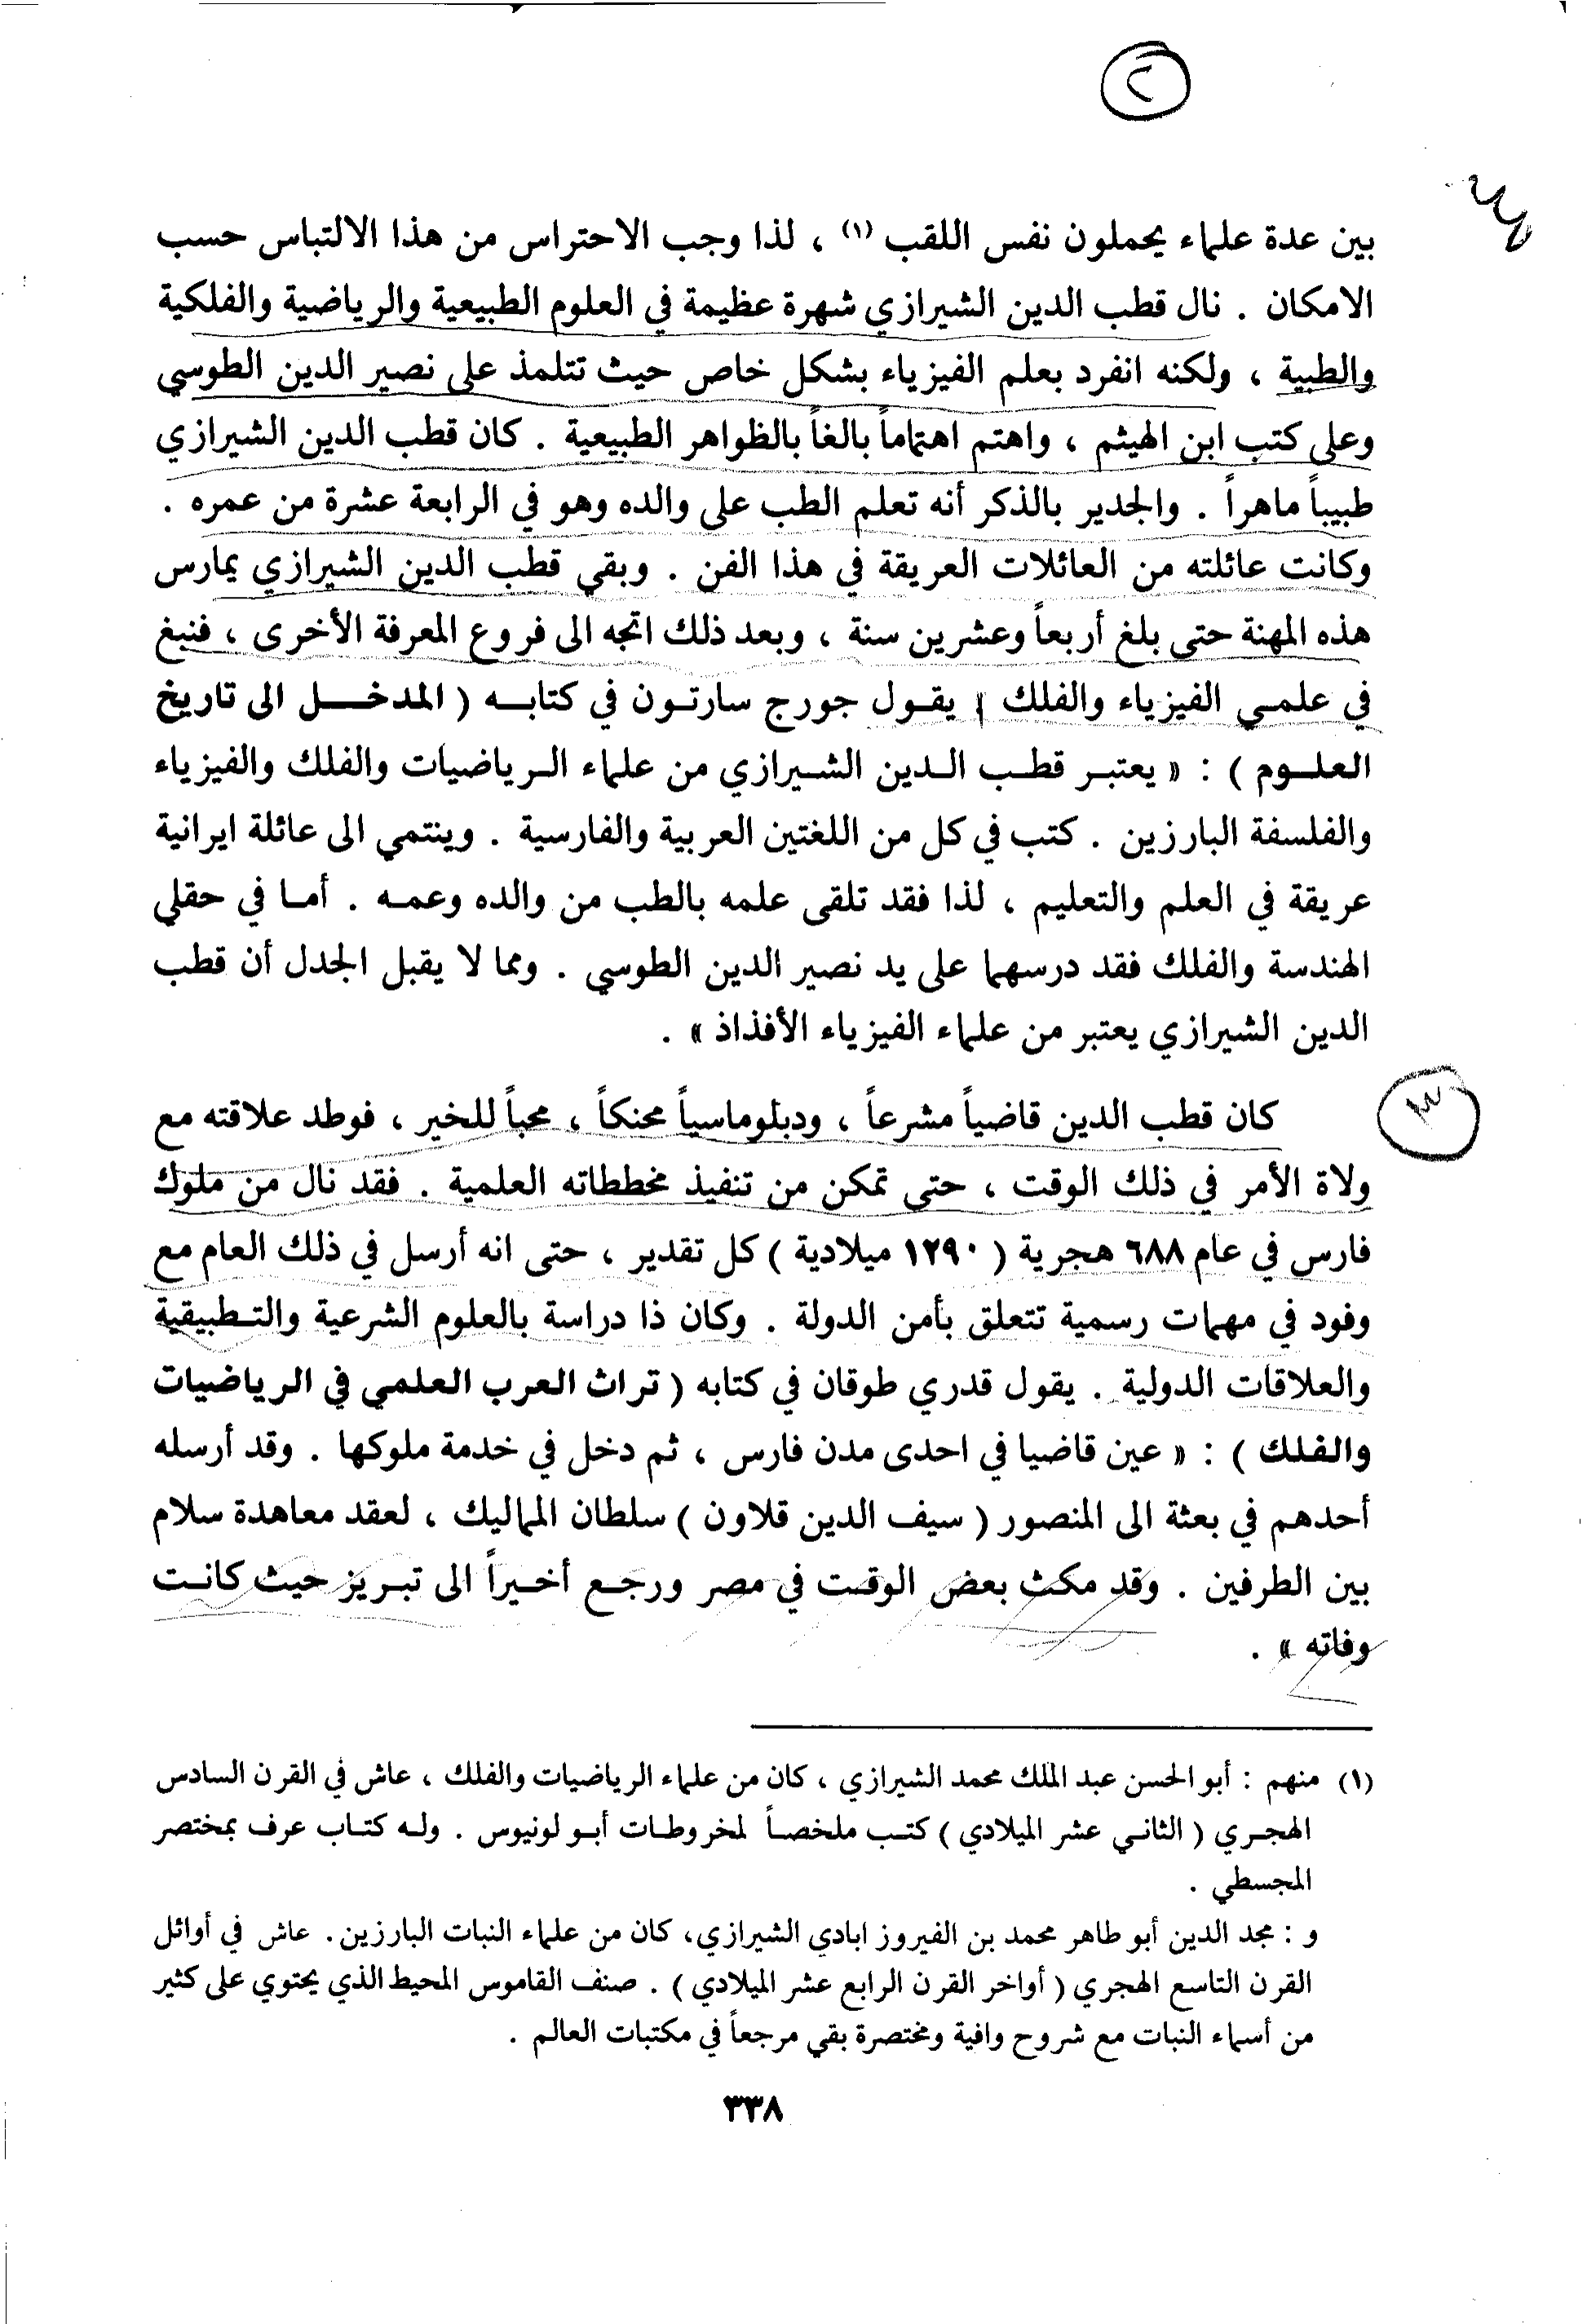 ٢
بين عدة علماء يحملون نفس اللقب (١) ، لذا وجب الاحتراس من هذا الالتباس حسب
الامكان . نال قطب الدين الشيرازي شهرة عظيمة في العلوم الطبيعية والرياضية والفلكية
والطبية ، ولكنه انفرد بعلم الفيزياء بشكل خاص حيث تتلمذ على نصير الدين الطوسي
وعلى كتب ابن الهيثم ، واهتم اهتماماً بالغاً بالظواهر الطبيعية . كان قطب الدين الشيرازي
طبيباً ماهراً . والجدير بالذكر أنه تعلم الطب على والده وهو في الرابعة عشرة من عمره .
وكانت عائلته من العائلات العريقة في هذا الفن . وبقي قطب الدين الشيرازي يمارس
هذه المهنة حتى بلغ أربعاً وعشرين سنة ، وبعد ذلك اتجه الى فروع المعرفة الأخرى ، فنبغ
في علمي الفيزياء والفلك . يقول جورج سارتون في كتابه ( المدخل الى تاريخ
العلوم ) : « يعتبر قطب الدين الشيرازي من علماء الرياضيات والفلك والفيزياء
والفلسفة البارزين . كتب في كل من اللغتين العربية والفارسية . وينتمي الى عائلة ايرانية
عريقة في العلم والتعليم ، لذا فقد تلقى علمه بالطب من والده وعمه . أما في حقلي
الهندسة والفلك فقد درسهما على يد نصير الدين الطوسي . ومما لا يقبل الجدل أن قطب
الدين الشيرازي يعتبر من علماء الفيزياء الأفذاذ » .
كان قطب الدين قاضياً مشرعاً ، ودبلوماسياً محنكاً ، محباً للخير ، فوطد علاقته مع
ولاة الأمر في ذلك الوقت ، حتى تمكن من تنفيذ مخططاته العلمية . فقد نال من ملوك
فارس في عام ٦٨٨ هجرية ( ١٢٩٠ ميلادية ) كل تقدير ، حتى انه أرسل في ذلك العام مع
وفود في مهمات رسمية تتعلق بأمن الدولة . وكان ذا دراسة بالعلوم الشرعية والتطبيقية
والعلاقات الدولية . يقول قدري طوقان في كتابه ( تراث العرب العلمي في الرياضيات
والفلك ) : « عين قاضيا في احدى مدن فارس ، ثم دخل في خدمة ملوكها . وقد أرسله
أحدهم في بعثة الى المنصور ( سيف الدين قلاون ) سلطان المماليك ، لعقد معاهدة سلام
بين الطرفين . وقد مكث بعض الوقت في مصر ورجع أخيراً الى تبريز حيث كانت
وفاته » .
(١) منهم : أبو الحسن عبد الملك محمد الشيرازي ، كان من علماء الرياضيات والفلك ، عاش في القرن السادس
الهجري ( الثاني عشر الميلادي ) كتب ملخصاً لمخروطات أبو لونيوس . وله كتاب عرف بمختصر
المجسطي .
و : مجد الدين أبو طاهر محمد بن الفيروز ابادي الشيرازي، كان من علماء النبات البارزين. عاش في أوائل
القرن التاسع الهجري ( أواخر القرن الرابع عشر الميلادي ) . صنف القاموس المحيط الذي يحتوي على كثير
من أسماء النبات مع شروح وافية ومختصرة بقي مرجعاً في مكتبات العالم .
٣٣٨